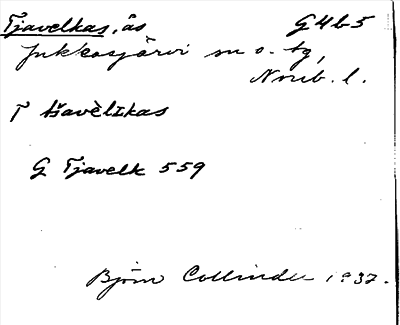 Tjavelkas, ås G4b5
Jukkasjärvi sn o. tg,
Norrb. l.
T tšavèlɪkas
G Tjavelk 559
Björn Collinder 1932.